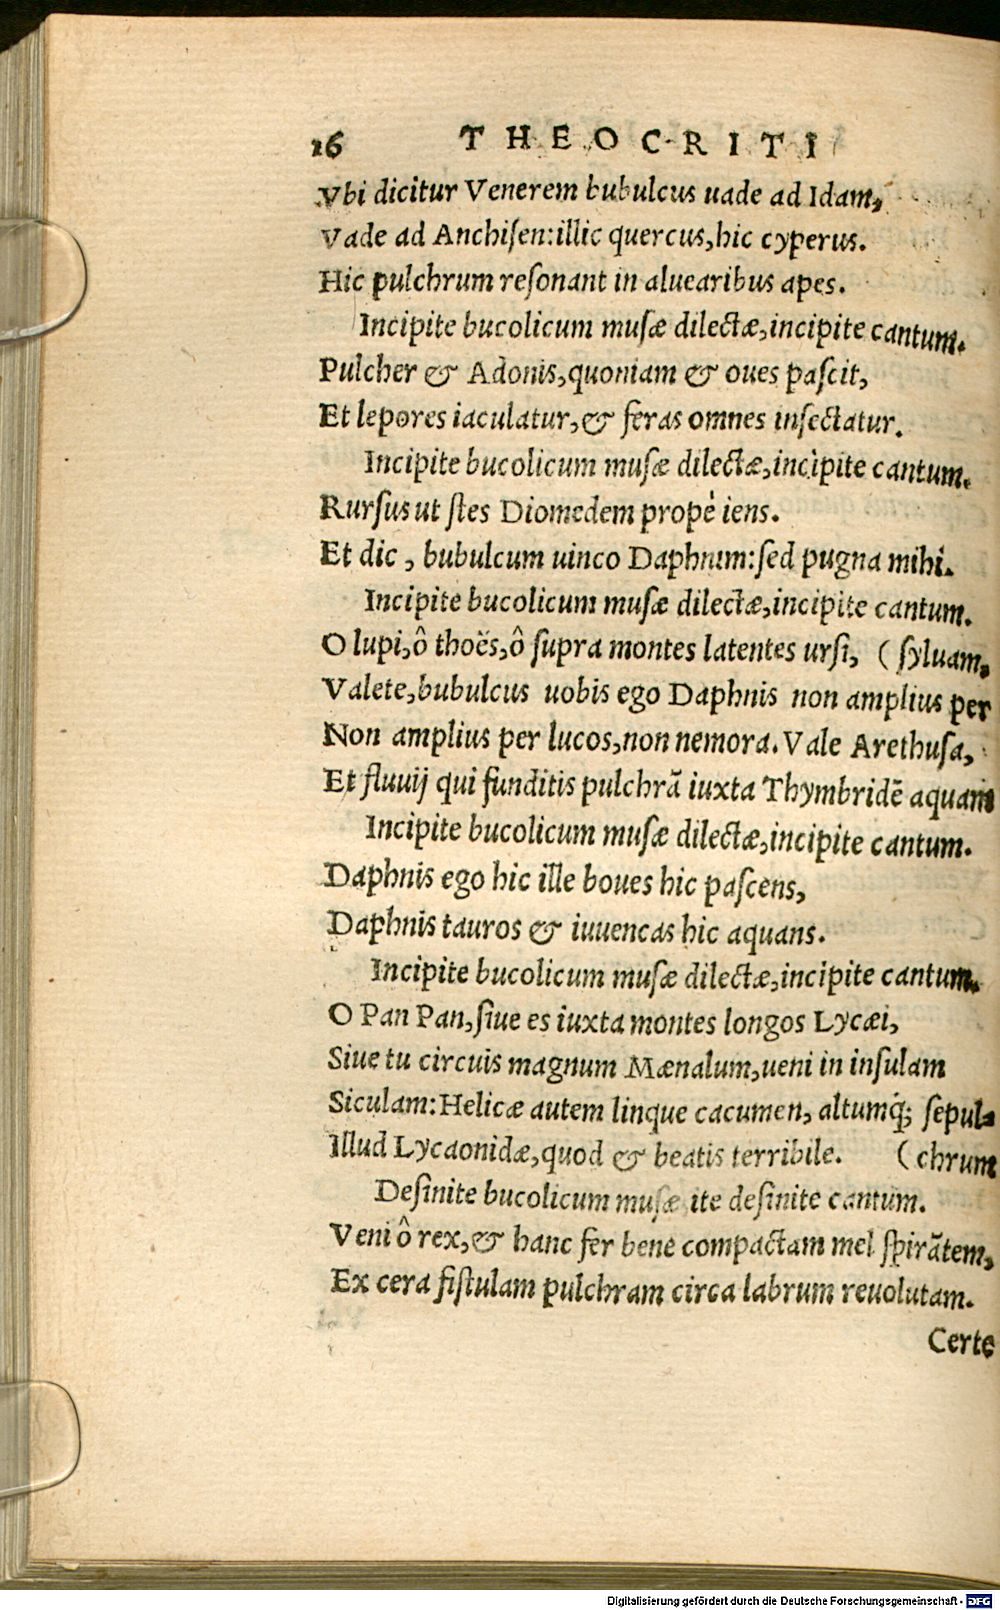 16 THEOCRITI
Vbi dicitur Venerem bubulcus uade ad Idam,
Vade ad Anchiſen:illic quercus,hic cyperus.
Hic pulchrum reſonant in aluearibus apes.
Incipite bucolicum muſæ dilectæ,incipite cantum.
Pulcher & Adonis,quoniam & oues paſcit,
Et lepores iaculatur,& feras omnes inſectatur.
Incipite bucolicum muſæ dilectæ,incipite cantum.
Rurſus ut ſtes Diomedem propè iens.
Et dic , bubulcum uinco Daphnim:ſed pugna mihi.
Incipite bucolicum muſæ dilectæ,incipite cantum.
O lupi,ô thoës,ô ſupra montes latentes urſi, ( ſyluam,
Valete,bubulcus uobis ego Daphnis non amplius per
Non amplius per lucos,non nemora. Vale Arethuſa,
Et fluuij qui funditis pulchrã iuxta Thymbridẽ aquam
Incipite bucolicum muſæ dilectæ,incipite cantum.
Daphnis ego hic ille boues hic paſcens,
Daphnis tauros & iuuencas hic aquans.
Incipite bucolicum muſæ dilectæ,incipite cantum.
O Pan Pan,ſiue es iuxta montes longos Lycæi,
Siue tu circuis magnum Mænalum,ueni in inſulam
Siculam:Helicæ autem linque cacumen, altumq́; ſepul-
Illud Lycaonidæ,quod & beatis terribile. ( chrum
Deſinite bucolicum muſæ ite deſinite cantum.
Veni ô rex,& hanc fer bene compactam mel ſpirãtem,
Ex cera fiſtulam pulchram circa labrum reuolutam.
Certe
Digitalisierung gefördert durch die Deutsche Forschungsgemeinschaft - DFG